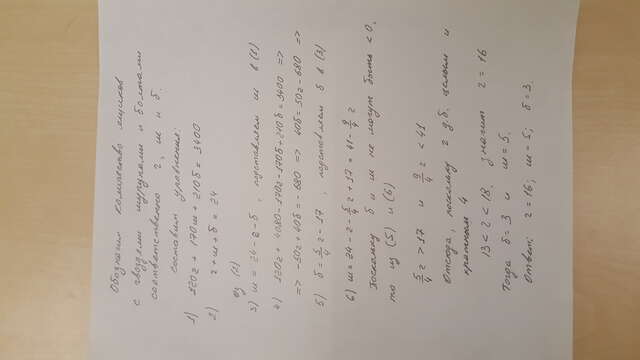 Обозначим количество ящиков
с гвоздями шурупами и болтами
соответственно г, ш и б.
Составим уравнения:
1) 120г + 170ш + 210б = 3400
2) г + ш + б = 24
из (2)
3) ш = 24 - г - б , подставляем ш в (1)
4) 120г + 4080 - 170г - 170б + 210б = 3400 =>
=> -50г + 40б = - 680 => 40б = 50г - 680 =>
5) б = 5/4 г - 17 , подставляем б в (3)
6) ш = 24 - г - 5/4 г + 17 = 41 - 9/4 г
Поскольку б и ш не могут быть < 0,
то из (5) и (6)
5/4 г > 17 и 9/4 г < 41
Отсюда, поскольку г д.б. целым и
кратным 4
13 < г < 18, значит г = 16
Тогда б = 3 и ш = 5.
Ответ: г = 16; ш = 5; б = 3.